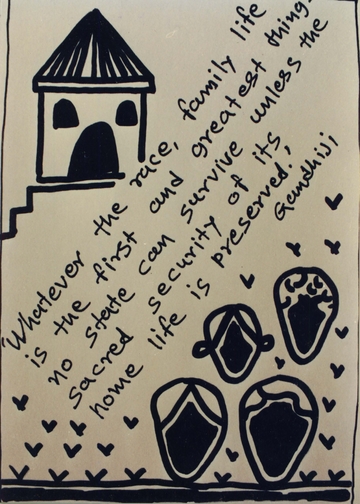 'Whatever the race, family life
is the first and greatest thing.
no state can survive unless the
sacred security of its
home life is preserved'.
Gandhiji